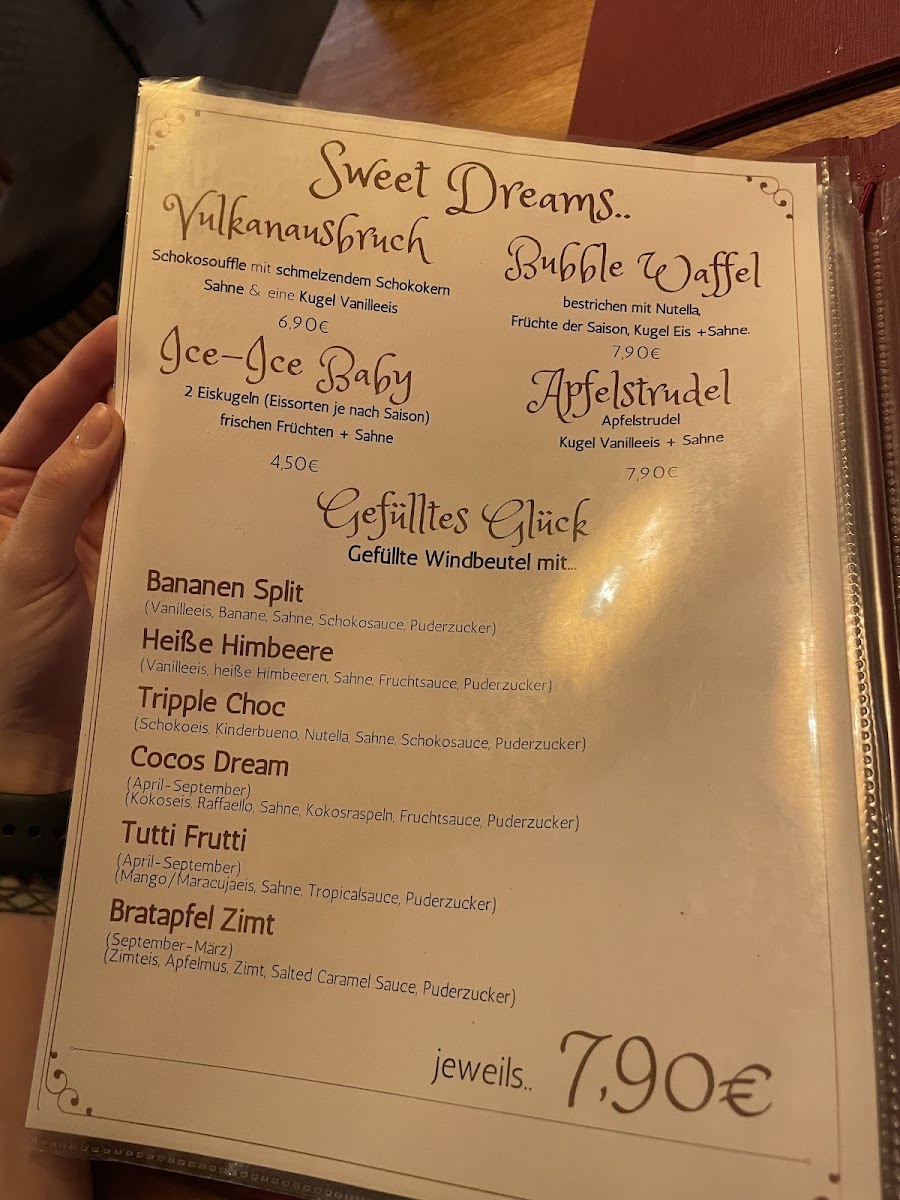 Sweet Dreams..
Vulkanausbruch
Schokosouffle mit schmelzendem Schokokern
Sahne & eine Kugel Vanilleeis
6,90€
Bubble Waffel
bestrichen mit Nutella,
Früchte der Saison, Kugel Eis +Sahne.
7,90€
Ice-Ice Baby
2 Eiskugeln (Eissorten je nach Saison)
frischen Früchten + Sahne
4,50€
Apfelstrudel
Apfelstrudel
Kugel Vanilleeis + Sahne
7,90€
Gefülltes Glück
Gefüllte Windbeutel mit...
Bananen Split
(Vanilleeis, Banane, Sahne, Schokosauce, Puderzucker)
Heiße Himbeere
(Vanilleeis, heiße Himbeeren, Sahne, Fruchtsauce, Puderzucker)
Tripple Choc
(Schokoeis, Kinderbueno, Nutella, Sahne, Schokosauce, Puderzucker)
Cocos Dream
(April-September)
(Kokoseis, Raffaello, Sahne, Kokosraspeln, Fruchtsauce, Puderzucker)
Tutti Frutti
(April-September)
(Mango/Maracujaeis, Sahne, Tropicalsauce, Puderzucker)
Bratapfel Zimt
(September-März)
(Zimteis, Apfelmus, Zimt, Salted Caramel Sauce, Puderzucker)
jeweils.. 7,90€